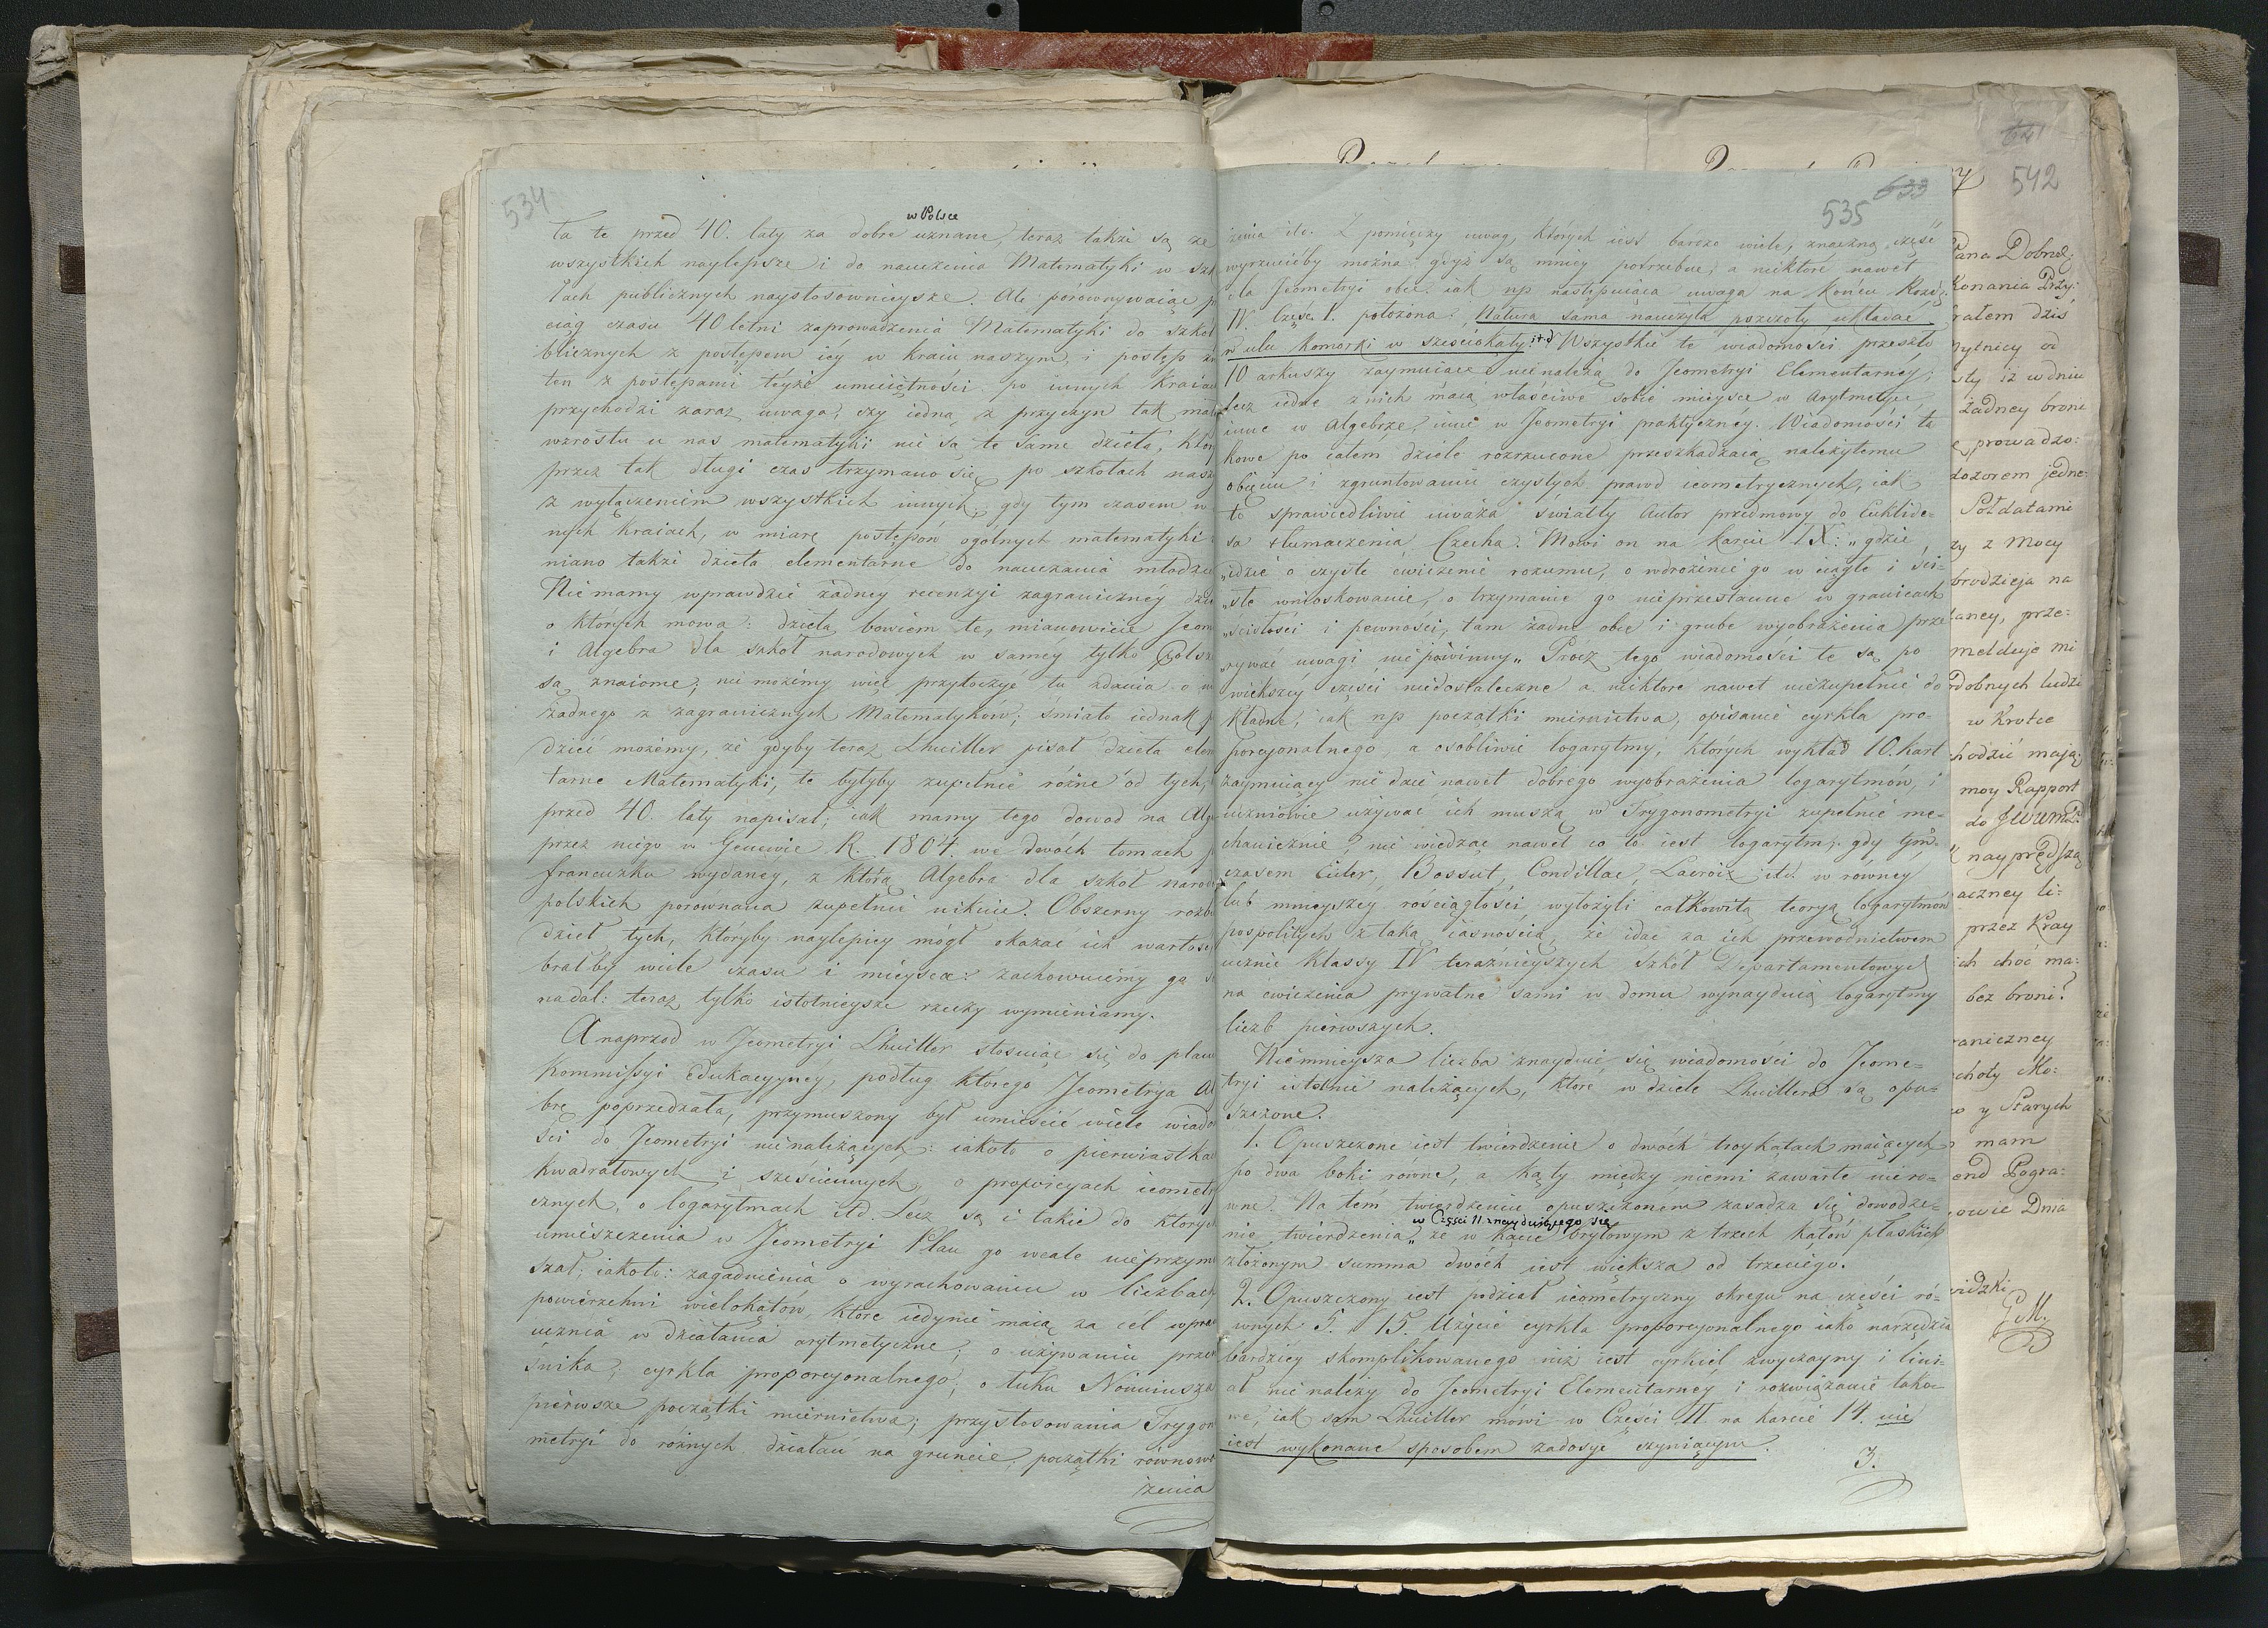 534
w Polsce
ta te przed 40. laty za dobre uznane, teraz także są ze
wszystkich naylepsze i do nauczenia Matematyki w szk
łach publicznych naystosownieysze. Ale porównywaiąc p
ciąg czasu 40 letni zaprowadzenia Matematyki do szkół
blicznych z postępem iéy w kraiu naszym, i postęp
ten z postępami téyże umieiętności po innych kraiac
przychodzi zaraz uwaga, czy iedną z przyczyn tak mał
wzrostu u nas matematyki nie są te same dzieła, któr
przez tak długi czas trzymano się po szkołach nasz
z wyłączeniem wszystkich innych; gdy tym czasem w
nych kraiach, w miarę postępów ogólnych matematyki
niano także dzieła elementarne do nauczania młodzi
Nie mamy wprawdzie żadney recenzyi zagraniczney dzie
o których mowa: dzieła bowiem te, mianowicie Jeom
i Algebra dla szkół narodowych w samey tylko Polsz
są znaiome; nie możemy więc przytoczyć tu zdania o
żadnego z zagranicznych Matematyków; śmiało iednak
dzieć możemy, że gdyby teraz Lhuiller pisał dzieła elem
tarne Matematyki, te byłyby zupełnie różne od tych,
przed 40. laty napisał; iak mamy tego dowod na Alg
przez niego w Genewie R. 1804. we dwóch tomach
francuzku wydaney, z którą Algebra dla szkół narod
polskich porównana zupełnie niknie. Obszerny rozb
dzieł tych, któryby naylepiey mógł okazać ich wartość
brałby wiele czasu i mieysca: zachowuiemy go
nadal: teraz tylko istotnieysze rzeczy wymieniamy.
A naprzod w Jeometryi Lhuiller stosuiąc się do planu
Kommissyi Edukacyyney, podług którego Jeometrya Al
brę poprzedzała, przymuszony był umieścić wiele wiado
ści do Jeometryi nienależących: iakoto o pierwiastka
kwadratowych i sześciennych, o proporcyach ieometr
cznych, o logarytmach itd. Lecz są i takie do których
umieszczenia w Jeometryi Plan go wcale nieprzym
szał; iakoto: zagadnienia o wyrachowaniu w liczbach
powierzchni wielokątów, które iedynie maią za cel wpra
ucznia w działania arytmetyczne; o używaniu prze
śnika, cyrkla proporcyonalnego; o łuku Noniusza
pierwsze początki miernictwa; przystosowania Trygon
metryi do rożnych działań na gruncie, początki równow
żenia
633
535
żenia itd. Z pomięczy uwag, których iest barczo wiele, znaczną część
wyrzucićby można gdyż są mniey potrzebne; a niektóre nawet
dla Jeometryi obce. iak np następuiąca uwaga na końcu Rozdz:
IV. Część I. położona: „Natura sama nauczyła pszczoły układać
w ulu komorki w sześciokąty: itd" Wszystkie te wiadomości przeszło
10 arkuszy zaymuiące nienależą do Jeometryi Elementarney;
lecz iedne z nich maią właściwe sobie mieysce w Arytmetyce,
inne w Algebrze, inne w Jeometryi praktyczney. Wiadomości ta
kowe po całém dziele rozrzucone przeszkadzaią należytemu
obięciu i zgruntowaniu czystych prawd ieometrycznych, iak
to sprawiedliwie uważa światły Autor przedmowy do Euklide=
sa tłumaczenia Czecha. Mówi on na karcie IX: „gdzie
„idzie o czyste ćwiczenie rozumu, o wdrożenie go w ciągłe i ści=
„słe wnioskowanie, o trzymanie go nieprzestanne w granicach
„ścisłości i pewności, tam żadne obce i grube wyobrażenia prze
„rywać uwagi niepowinny„ Prócz tego wiadomości te są po
większey części niedostateczne a niektóre nawet niezupełnie do
kładne, iak np początki miernictwa, opisanie cyrkla pro=
porcyonalnego, a osobliwie logarytmy, których wykład 10. kart
zaymuiący nie daie nawet dobrego wyobrażenia logarytmów, i
uczniowie używać ich muszą w Trygonometryi zupełnie me=
chanicznie, nie wiedząc nawet co to iest logarytm; gdy tym=
czasem Euler, Bossut, Condillac, Lacroix itd. w równey
lub mnieyszéy rościągłości wyłożyli całkowitą teoryą logarytmów
pospolitych z taką iasnością, że idąc za ich przewodnictwem
ucznie Klassy IV teraźnieyszych Szkół Departamentowych
na ćwiczenia prywatne sami w domu wynayduią logarytmy
liczb pierwszych.
Niemnieysza liczba znayduie się wiadomości do Jeome=
tryi istotnie należących, które w dziele Lhuillera są opu=
szczone.
1. Opuszczone iest twierdzenie o dwóch troykątach maiących
po dwa boki rowne, a kąty między niemi zawarte niero=
wne. Na tém twierdzeniu opuszczoném zasadza się dowodze=
w Części II znayduiącego się
nie twierdzenia „że w kącie bryłowym z trzech kątów płaskich
złożonym summa dwóch iest większa od trzeciego.
2. Opuszczony iest podział ieometryczny okręgu na części ró=
wnych 5. 15. Użycie cyrkla proporcyonalnego iako narzędzia
bardziey skomplikowanego niż iest cyrkiel zwyczayny i lini=
ał nie należy do Jeometryi Elementarnéy i rozwiązanie tako=
we, iak sam Lhuiller mówi w Części II na karcie 14. nie
iest wykonane sposobem zadosyć czyniącym.
3.
542
Pana Dobrod:
konania Przy:
rałem dziś
sty iż w dniu
żadney broni
prowadzo:
dozorem jedne:
Żołdatami
z Mocy
brodzieja na
prze=
melduje mi
dobnych ludzi
w krotce
chodzić mają;
moy Rapport
do JWumd:
nayprędszą
aczney li=
przez Kray
ich choć ma:
bez broni!
raniczney
choty Mo:
y Starych
mam
Pogra:
Dnia
GM.